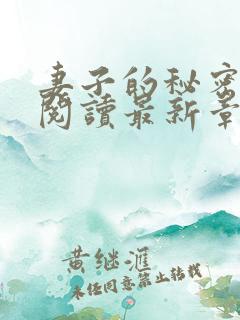 妻子的秘密
閱讀最新章
黄继滙
未经同意禁止转载